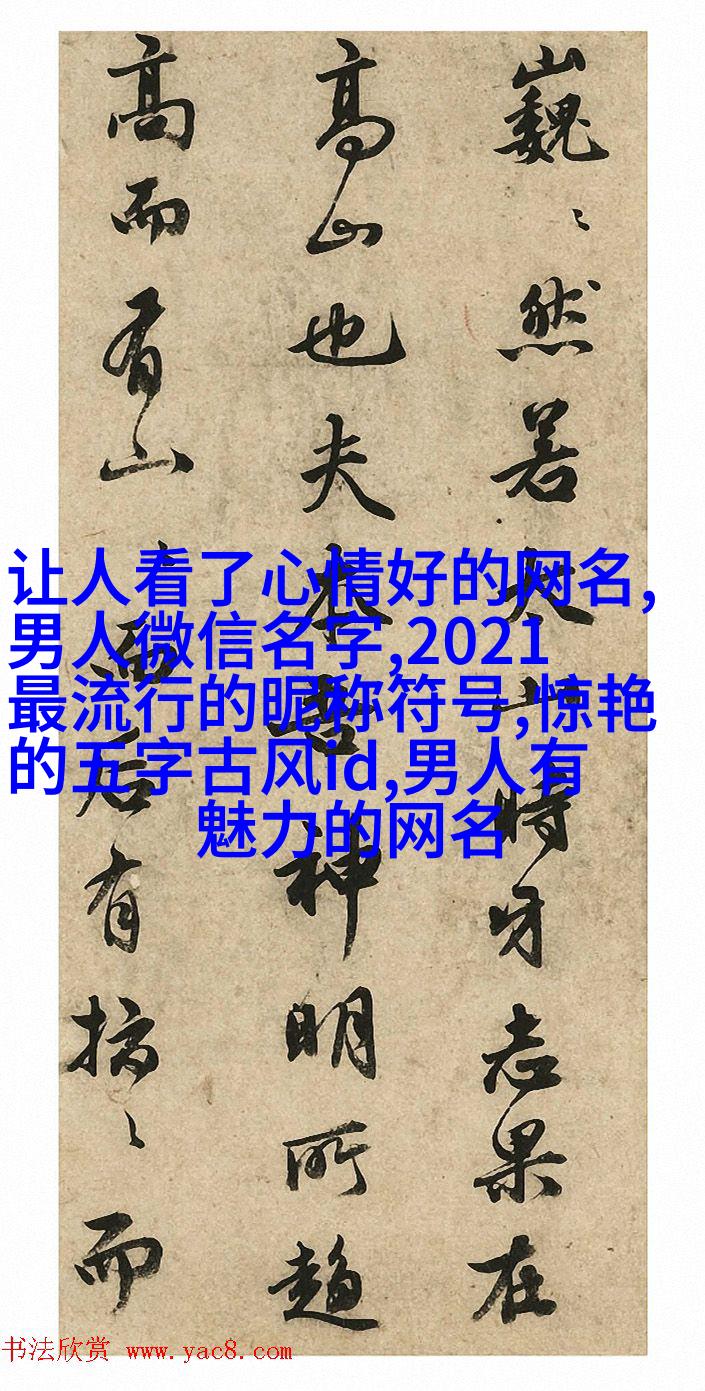 巍〻然若太山時牙志果在
高山也夫本神明所趨
高而有山而后有〻而
让人看了心情好的网名,
男人微信名字,2021
最流行的昵称符号,惊艳
的五字古风id,男人有
魅力的网名
书法欣赏 www.yac8.com